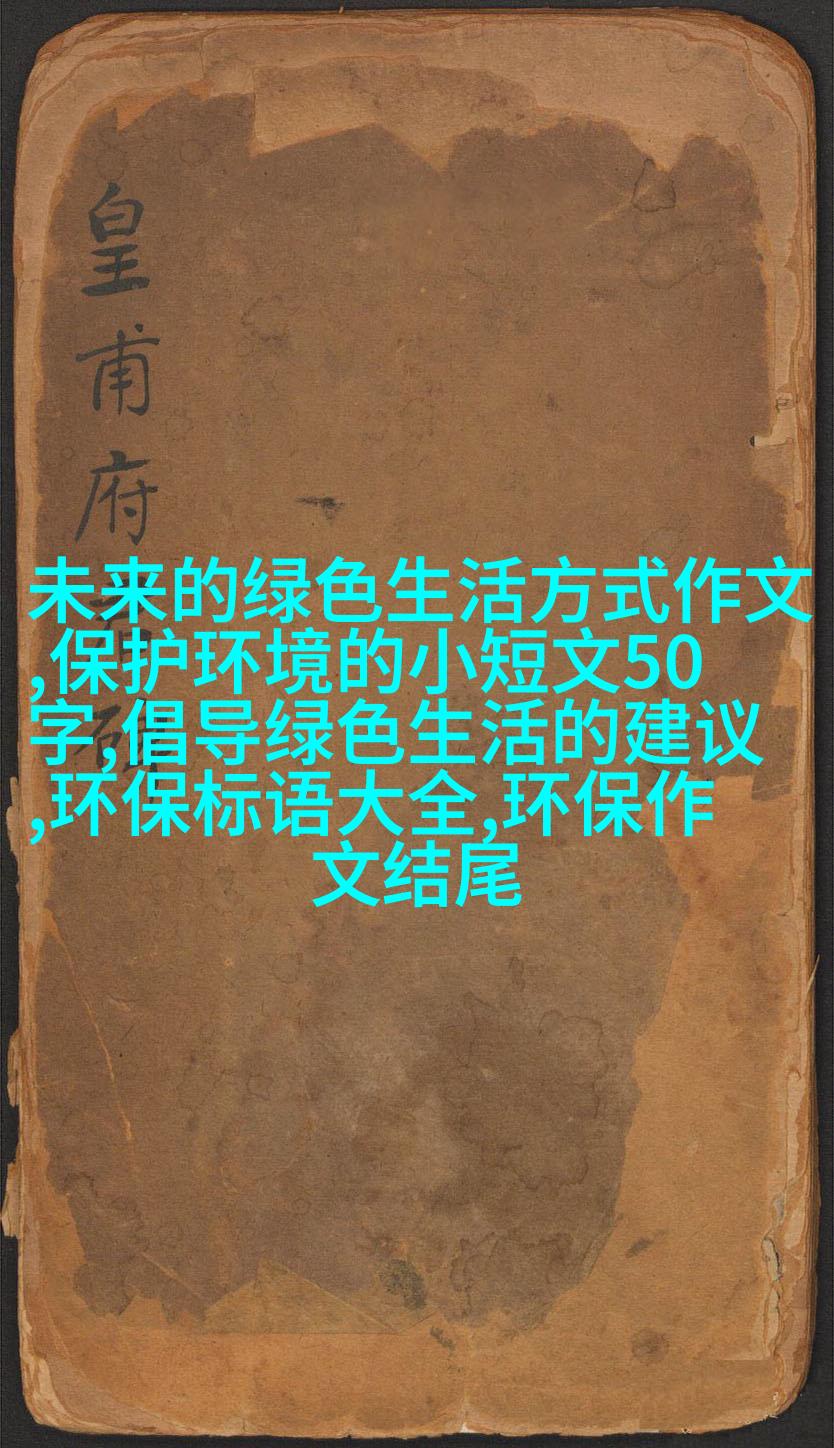 皇甫府君碑
未来的绿色生活方式作文
,保护环境的小短文50
字,倡导绿色生活的建议
,环保标语大全,环保作
文结尾